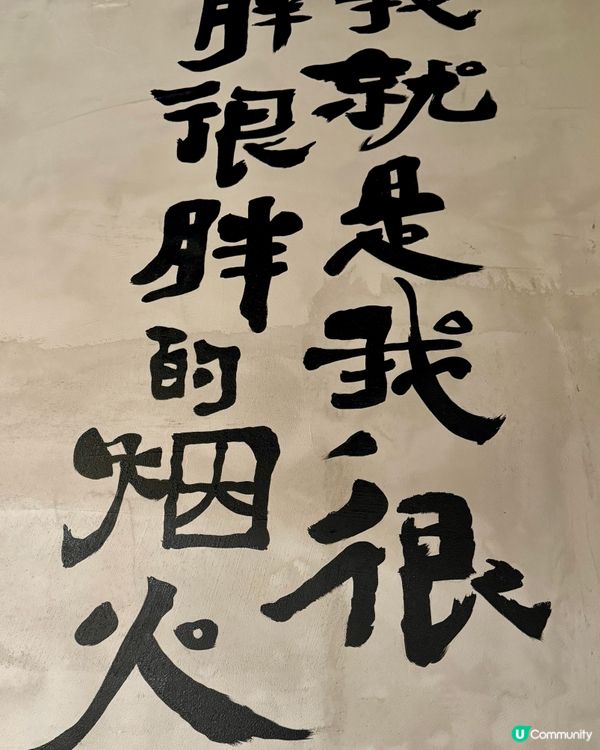 我就是我很
胖很胖的烟火
U Community